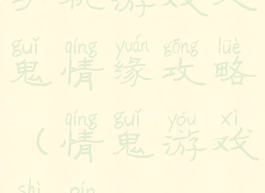 guǐ qíng yuán gōng lüè
鬼情缘攻略
qíng guǐ yóu xì
（情鬼游戏
shì pín